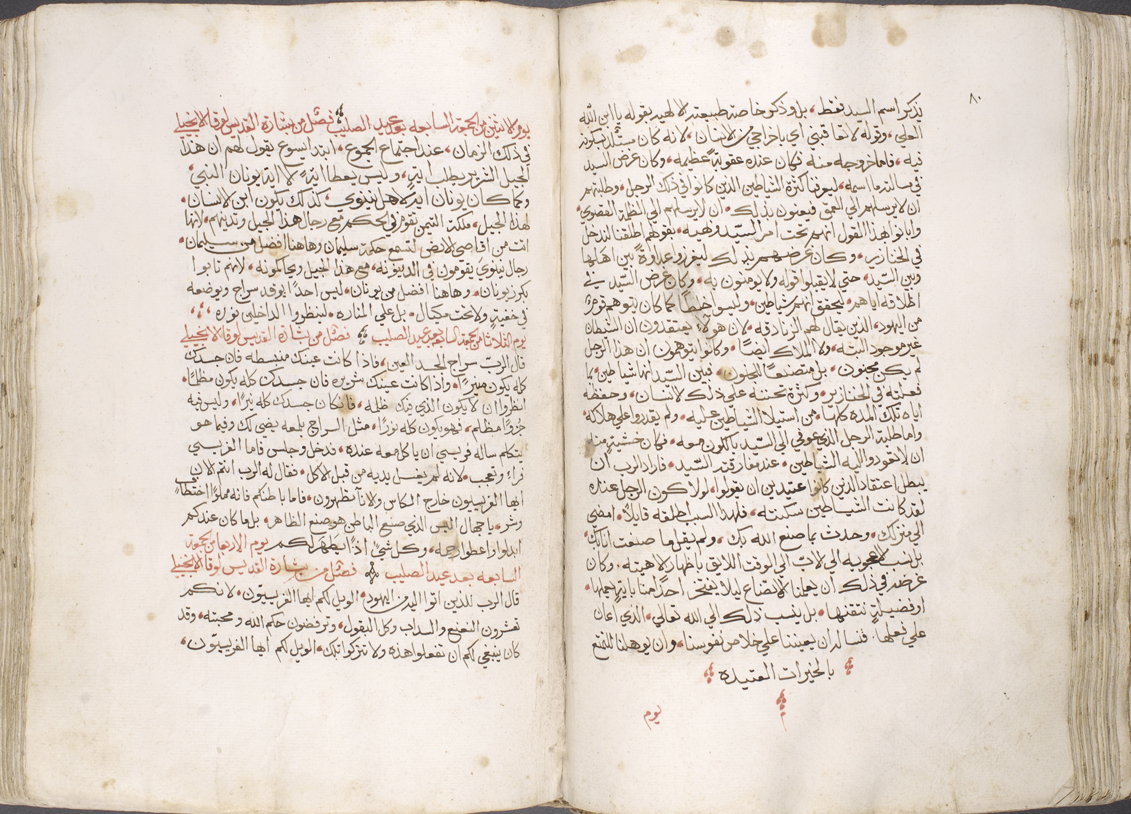 ٨٠
يذكر اسم السيد فقط، بل وذكر خاصة طبيعته الالهيه بقوله يا ابن الله
الحي، وقوله لا تعاقبني اي باخراجي من الانسان، لانه كان مستلذ بكونه
فيه، فاما خروجه منه فكان عنده عقوبةً عظيمه، وكان غرض السيد
في مسالته ما اسمه، ليعرفنا كثرة الشياطين الذين كانوا في ذلك الرجل، وطلبتهم
ان لا يرسلهم الي العمق فيعنون بذلك، ان لا يرسلهم الي الظلمة القصوي
وابانوا بهذا القول انهم تحت امر السيد وقهره، بقولهم اطلقنا لندخل
في الخنازير، وكان غرضهم بذلك ليغروا عداوةً بين اهلها
وبين السيد، حتي لا يقبلوا قوله ولا يومنون به، وكان غرض السيد في
اطلاقه اياهم، ليحقق انهم شياطين، وليس اخلاطا كما كان يتوهم قومٌ
من اليهود، الذين يقال لهم الزنادقه، لان هولاء يعتقدون ان الشيطان
غير موجود البته، ولا الملاك ايضًا، وكانوا يتوهمون ان هذا الرجل
لم يكن مجنون، بل متصنعًا للجنون، فبين السيد انها شياطين، بما
فعلته في الخنازير، وكثرة تحننه علي ذلك الانسان، وحفظه
اياه تلك المدة كلها، من استيلاء الشياطين عليه، ولم يقدروا علي هلاكه
واما طلبة الرجل الذي عوفي الي السيد بان يكون معه، فكان خشيةً منه
ان لا تعود اليه الشياطين، عند مفارقته السيد، فاراد الرب ان
يبطل اعتقاد الذين كانوا عتيدين ان يقولوا، لولا كون الرجل عنده
لقد كانت الشياطين سكنته، فلهذا السبب اطلقه قايلًا، امضي
الي منزلك، وحدث بما صنع الله بك، ولم يقل ما صنعت انا بك
بل نسب الاعجوبه الي الاب الي الوقت اللايق باظهار لاهوته، وكان
غرضه في ذلك ان يعلمنا الاتضاع ليلا يفتخر احد منا باية يعملها
او فضيلةٍ يتقنها، بل ينسب ذلك الي الله تعالي، الذي اعان
علي فعلها، فنساله ان يعيننا علي خلاص نفوسنا، وان يوهلنا للتمتع
بالخيرات العتيده
يوم
يوم الاثنين من الجمعة السابعه بعد عيد الصليب فصل من بشارة القديس لوقا الانجيلي
في ذلك الزمان، عند اجتماع الجموع، ابتدا يسوع يقول لهم ان هذا
الجيل الشرير يطلب ايةً، وليس يعطا ايةً الا اية يونان النبي،
وكما كان يونان ايةً لاهل نينوي، كذلك يكون ابن الانسان،
لهذا الجيل، ملكة التيمن تقوم في الحكم مع رجال هذا الجيل وتدينهم، لانها
اتت من اقاصي الارض لتسمع حكمة سليمان وهاهنا افضل من سليمان،
رجال نينوي يقومون في الدينونه، مع هذا الجيل ويحاكمونه، لانهم تابوا
بكرز يونان، وهاهنا افضل من يونان، ليس احدًا يوقد سراج ويوضعه
في خفيةٍ، ولا تحت مكيال، بل علي المناره، لينظروا الداخلين نوره
يوم الثلاثا من الجمعة السابعه بعد عيد الصليب فصل من بشارة القديس لوقا الانجيلي
قال الرب سراج الجسد العين، فاذا كانت عينك منبسطه فان جسدك
كله يكون منيرًا، واذا كانت عينك شريره فان جسدك كله يكون مظلمًا،
انظروا ان لا يكون الذي فيك ظلمه، فان كان جسدك كله نيرًا، وليس فيه
جزوًا مظلم، فهو يكون كله نورًا، مثل السراج بلمعه يضي لك وفيما هو
يتكلم ساله فريسي ان ياكل معه عنده، فدخل وجلس فاما الفريسي
فراء وتعجب، لانه لم يغسل يديه من قبل الاكل، فقال له الرب انتم الان
ايها الفريسيون خارج الكاس والانا تطهرون، فاما باطنكم فانه مملوًا اختطافًا
وشر، يا جهال اليس الذي صنع الباطن هو صنع الظاهر، بل ما كان عندكم
ابدلوا واعطوا رحمه، وكل شي اذًا يطهر لكم يوم الاربعا من الجمعة
السابعه بعد عيد الصليب فصل من بشارة القديس لوقا الانجيلي
قال الرب للذين اتوا اليه من اليهود، الويل لكم ايها الفريسيون، لانكم
تعشرون النعنع والسداب وكل البقول، وترفضون حكم الله ومحبته، وقد
كان ينبغي لكم ان تفعلوا هذه ولا تتركوا تلك، الويل لكم ايها الفريسيون،